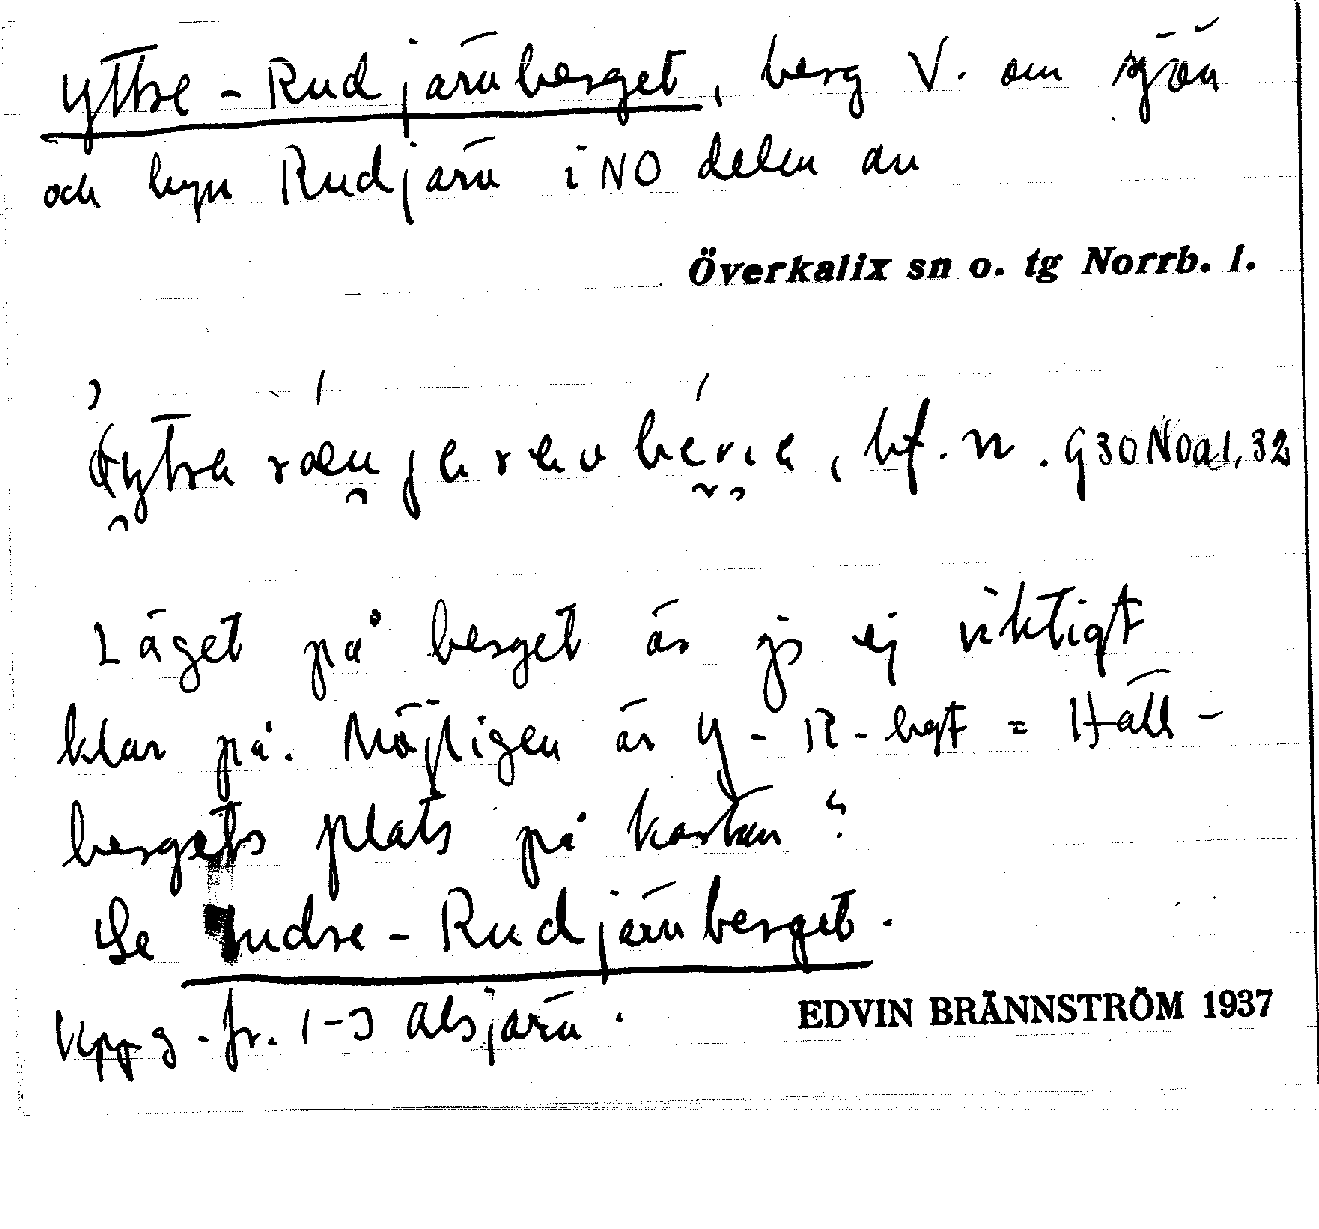 Yttre-Rudjärvberget, berg V. om sjön
och byn Rudjärv i NO delen av
Överkalix sn o. tg Norrb. l.
bf. n. g 30 Noa 1, 32
Läget på berget är jg ej riktigt
klar på. Möjligen är Y-R-bgt = Häll-
bergets plats på kartan?
Se Indre-Rudjärvberget.
Uppg. fr. 1-3 Alsjärv.
EDVIN BRÄNNSTRÖM 1937